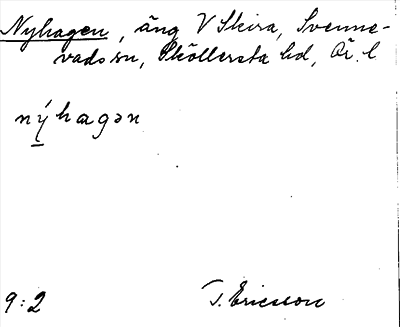 Nyhagen, äng V Skira, Svenne-
vads sn, Sköllersta hd, Ör. l
nýhagən
9:2 T. Ericsson